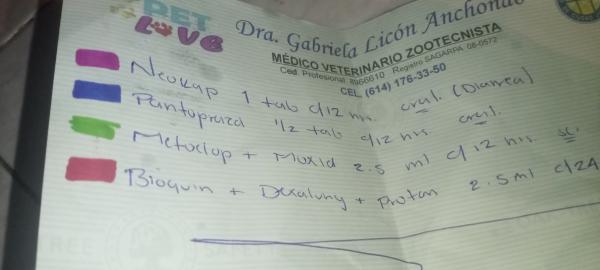 PET LOVE
Dra. Gabriela Licón Anchondo
MÉDICO VETERINARIO ZOOTECNISTA
Ced. Profesional 8966610 Registro SAGARPA 08-0572
CEL. (614) 176-33-50
Neukap 1 tab c/12 hrs. oral. (Diarrea)
Pantoprazol 1/2 tab c/12 hrs. oral.
Metoclop + Muxid 2.5 ml c/12 hrs. sc.
Bioquin + + Protan 2.5 ml c/24